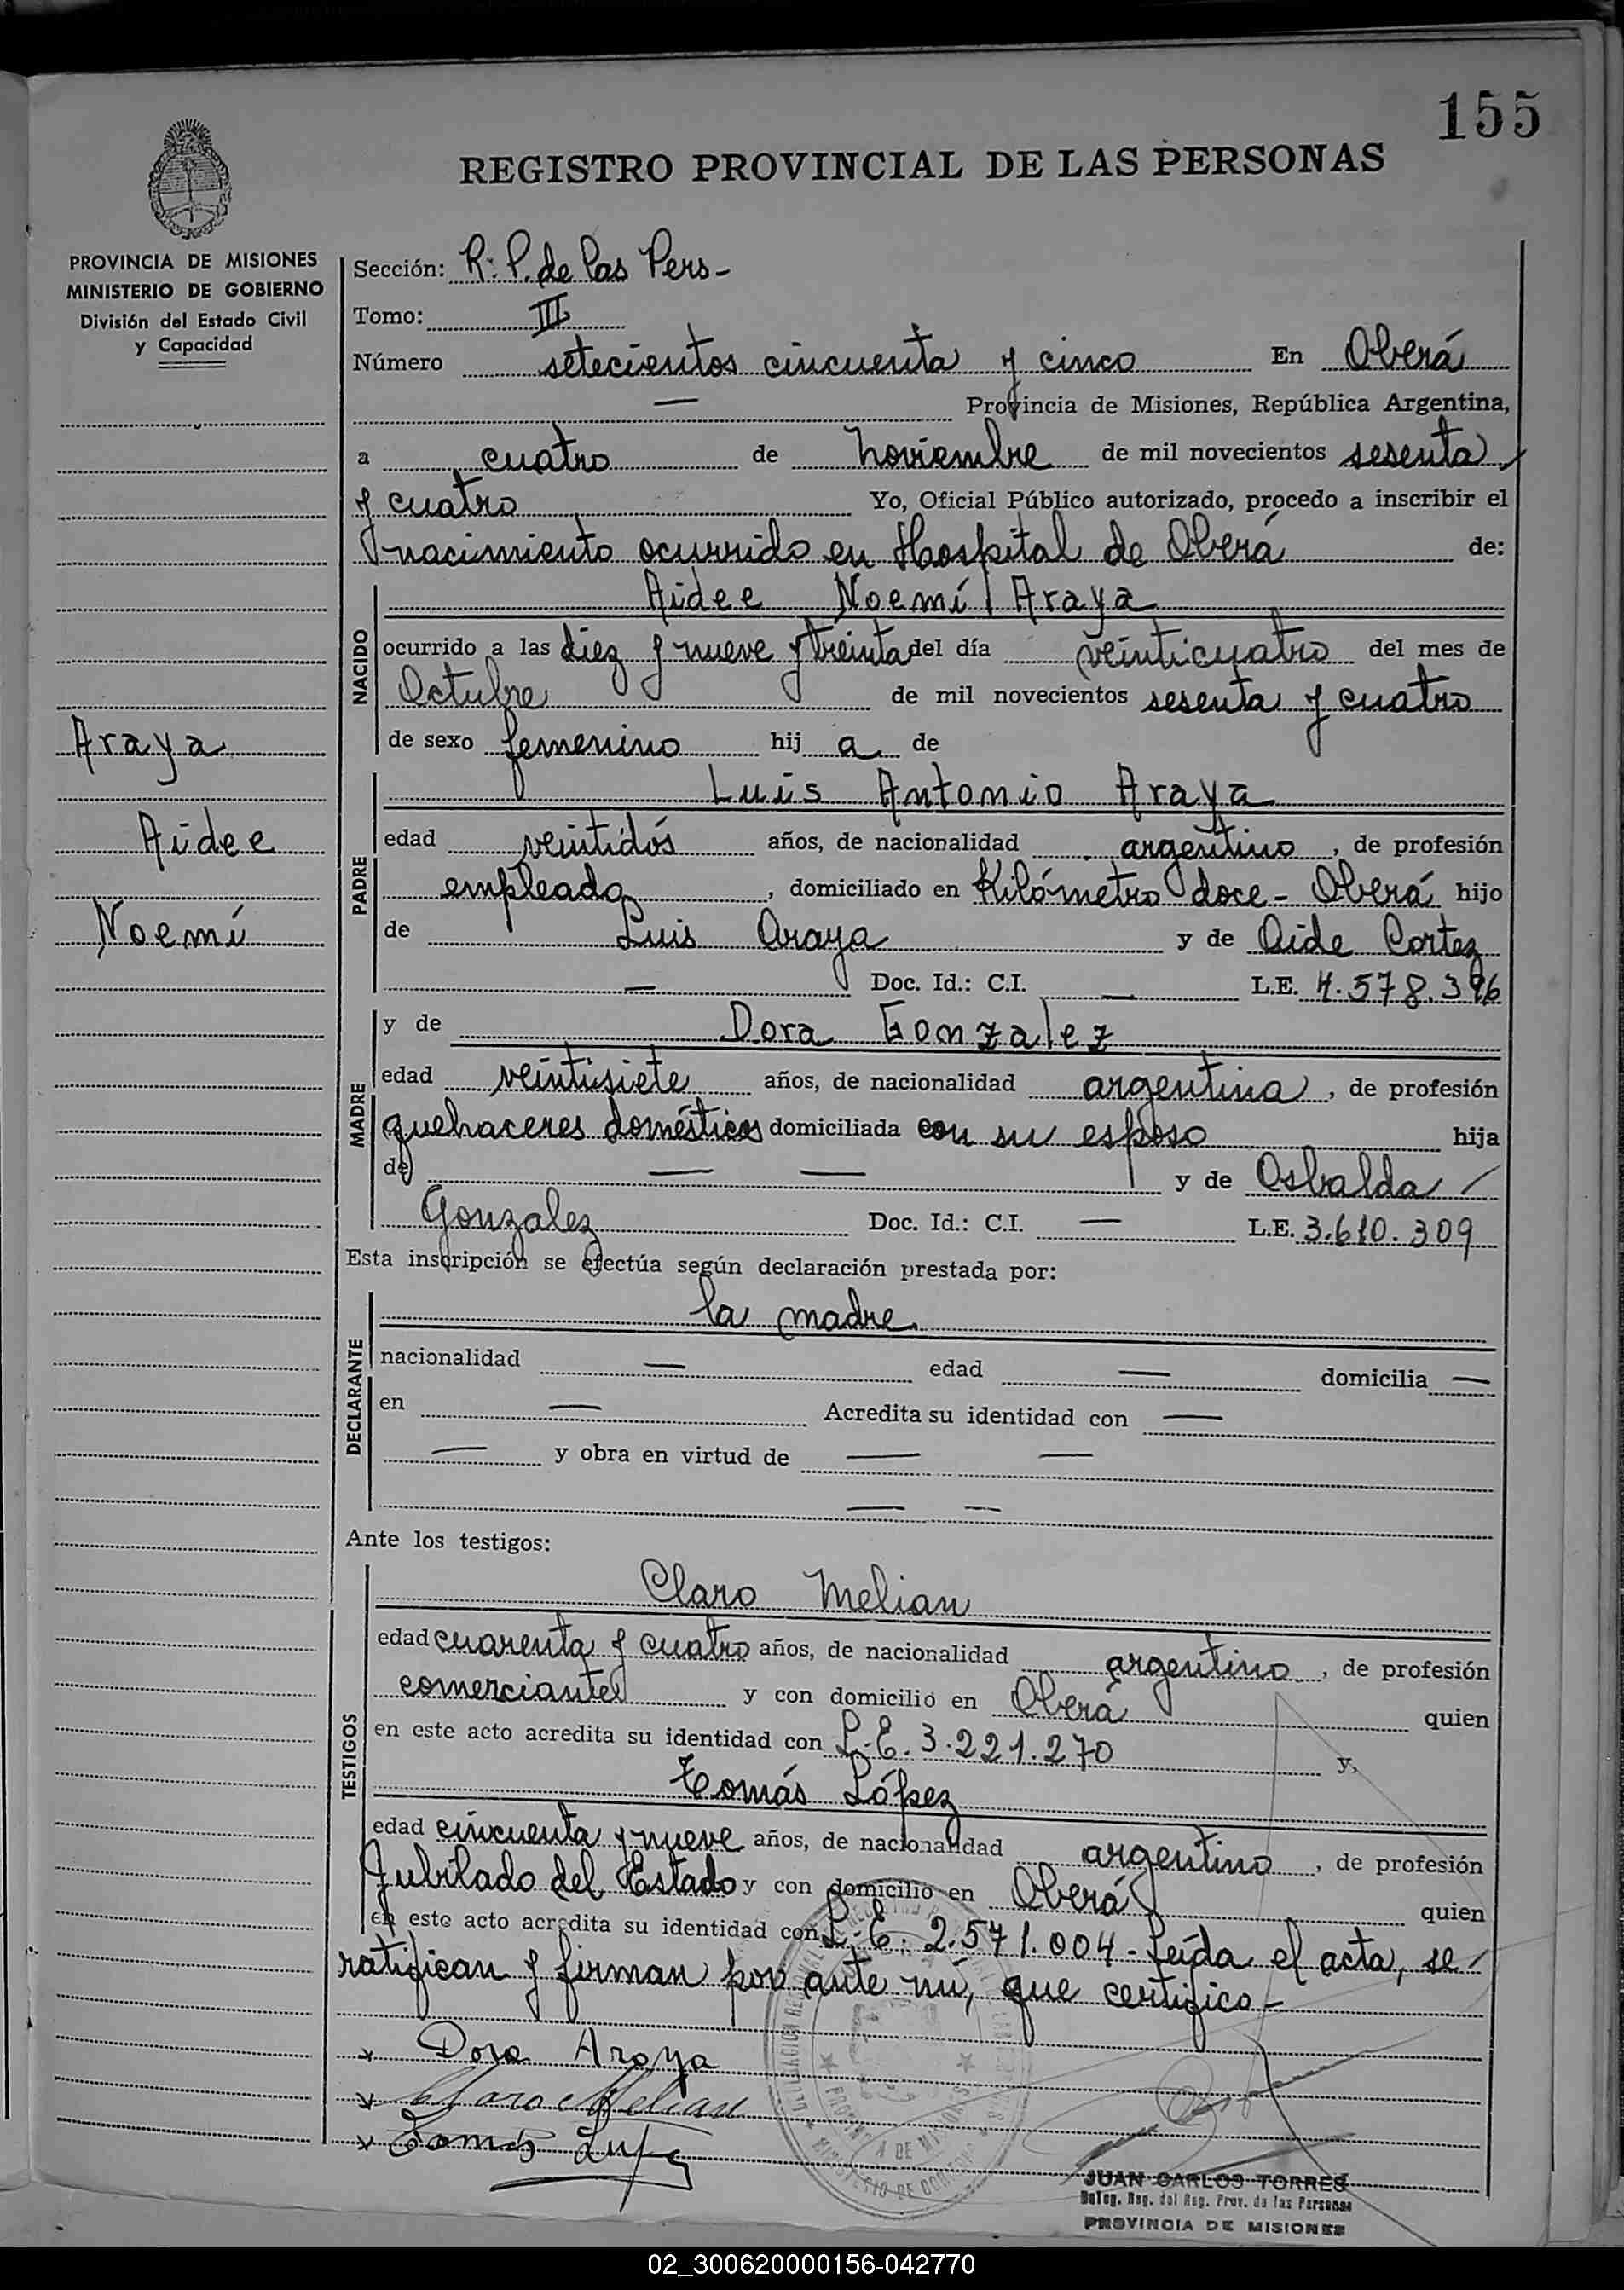 155
REGISTRO PROVINCIAL DE LAS PERSONAS
PROVINCIA DE MISIONES
MINISTERIO DE GOBIERNO
División del Estado Civil
y Capacidad
Araya
Aidee
Noemí
Sección: R. P. de las Pers-
Tomo: III
Número setecientos cincuenta y cinco En Oberá
— Provincia de Misiones, República Argentina,
a cuatro de noviembre de mil novecientos sesenta
y cuatro Yo, Oficial Público autorizado, procedo a inscribir el
nacimiento ocurrido en Hospital de Oberá de:
NACIDO
Aidee Noemí Araya
ocurrido a las diez y nueve y treinta del día veinticuatro del mes de
Octubre de mil novecientos sesenta y cuatro
de sexo femenino hij a de
PADRE
Luis Antonio Araya
edad veintidós años, de nacionalidad argentino, de profesión
empleado, domiciliado en Kilómetro doce - Oberá hijo
de Luis Araya y de Aide Cortez
— Doc. Id.: C.I. — L.E. 4.578.396
MADRE
y de Dora Gonzalez
edad veintisiete años, de nacionalidad argentina, de profesión
quehaceres domésticos domiciliada con su esposo hija
de — — y de Osbalda
Gonzalez Doc. Id.: C.I. — L.E. 3.610.309
Esta inscripción se efectúa según declaración prestada por:
DECLARANTE
la madre
nacionalidad — edad — domicilia —
en — Acredita su identidad con —
— y obra en virtud de — —
— —
Ante los testigos:
TESTIGOS
Claro Melian
edad cuarenta y cuatro años, de nacionalidad argentino, de profesión
comerciante y con domicilio en Oberá quien
en este acto acredita su identidad con L.E. 3.221.270 y,
Tomás López
edad cincuenta y nueve años, de nacionalidad argentino, de profesión
Jubilado del Estado y con domicilio en Oberá quien
en este acto acredita su identidad con L.E. 2.571.004 - Leída el acta, se
ratifican y firman por ante mí, que certifico -
x Dora Araya
x Claro Melian
x Tomás
PROVINCIA DE MISIONES
MINISTERIO DE GOBIERNO
JUAN CARLOS TORRES
Deleg. Reg. del Reg. Prov. de las Personas
PROVINCIA DE MISIONES
02_300620000156-042770